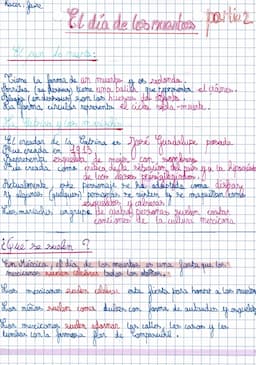 El día de los muertos partie 2
El pan de muerto:
Tiene la forma de un muerto y es redonda.
Arriba (au dessus) tiene una bolita que representa el cráneo.
Abajo (en dessous) son los huesos del difunto.
La forma circular representa el ciclo vida-muerte.
La Catrina y los mariachis
El creador de la Catrina es José Guadalupe posada
Fue creada en 1913
Representa esqueleto de mujer con sombrero.
Fue creada como critica de la situación del país y a la hipocresía
de las clases privilegiadas.
Actualmente, este personaje se ha adoptado como disfraz
y algunas (quelques) personas se visten y se maquillan como
esqueletos y calaveras
Los mariachis: un grupo de cuatro personas suelen cantar
canciones de la cultura mexicana.
¿Qué se suelen ?
En México, el día de los muertos es una fiesta que los
mexicanos suelen celebrar todos los años.
Los mexicanos suelen celebrar esta fiesta para honrar a los muertos
Los niños suelen comer dulces con forma de ataudes y esqueletos
Los mexicanos suelen adornar las calles, las casas y las
tumbas con la famosa flor de Cempasuchil.